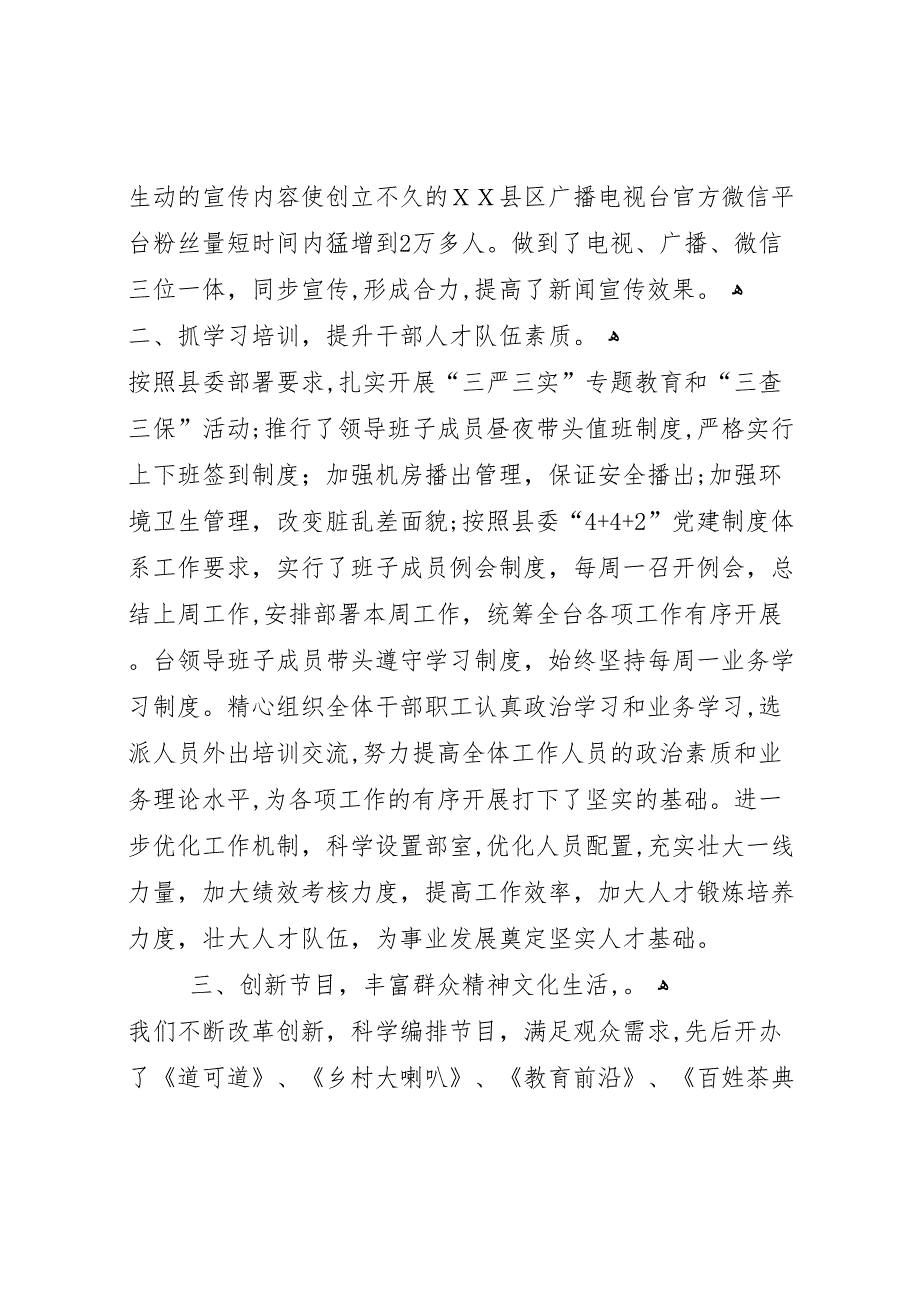 生动的宣传内容使创立不久的ＸＸ县区广播电视台官方微信平
台粉丝量短时间内猛增到2万多人。做到了电视、广播、微信
三位一体，同步宣传,形成合力,提高了新闻宣传效果。 ﻫ
二、抓学习培训，提升干部人才队伍素质。 ﻫ
按照县委部署要求,扎实开展“三严三实”专题教育和“三查
三保”活动;推行了领导班子成员昼夜带头值班制度,严格实行
上下班签到制度；加强机房播出管理，保证安全播出;加强环
境卫生管理，改变脏乱差面貌;按照县委“4+4+2”党建制度体
系工作要求，实行了班子成员例会制度，每周一召开例会，总
结上周工作,安排部署本周工作，统筹全台各项工作有序开展
。台领导班子成员带头遵守学习制度，始终坚持每周一业务学
习制度。精心组织全体干部职工认真政治学习和业务学习,选
派人员外出培训交流,努力提高全体工作人员的政治素质和业
务理论水平,为各项工作的有序开展打下了坚实的基础。进一
步优化工作机制，科学设置部室,优化人员配置,充实壮大一线
力量，加大绩效考核力度，提高工作效率，加大人才锻炼培养
力度，壮大人才队伍，为事业发展奠定坚实人才基础。
三、创新节目，丰富群众精神文化生活,。 ﻫ
我们不断改革创新，科学编排节目，满足观众需求,先后开办
了《道可道》、《乡村大喇叭》、《教育前沿》、《百姓茶典